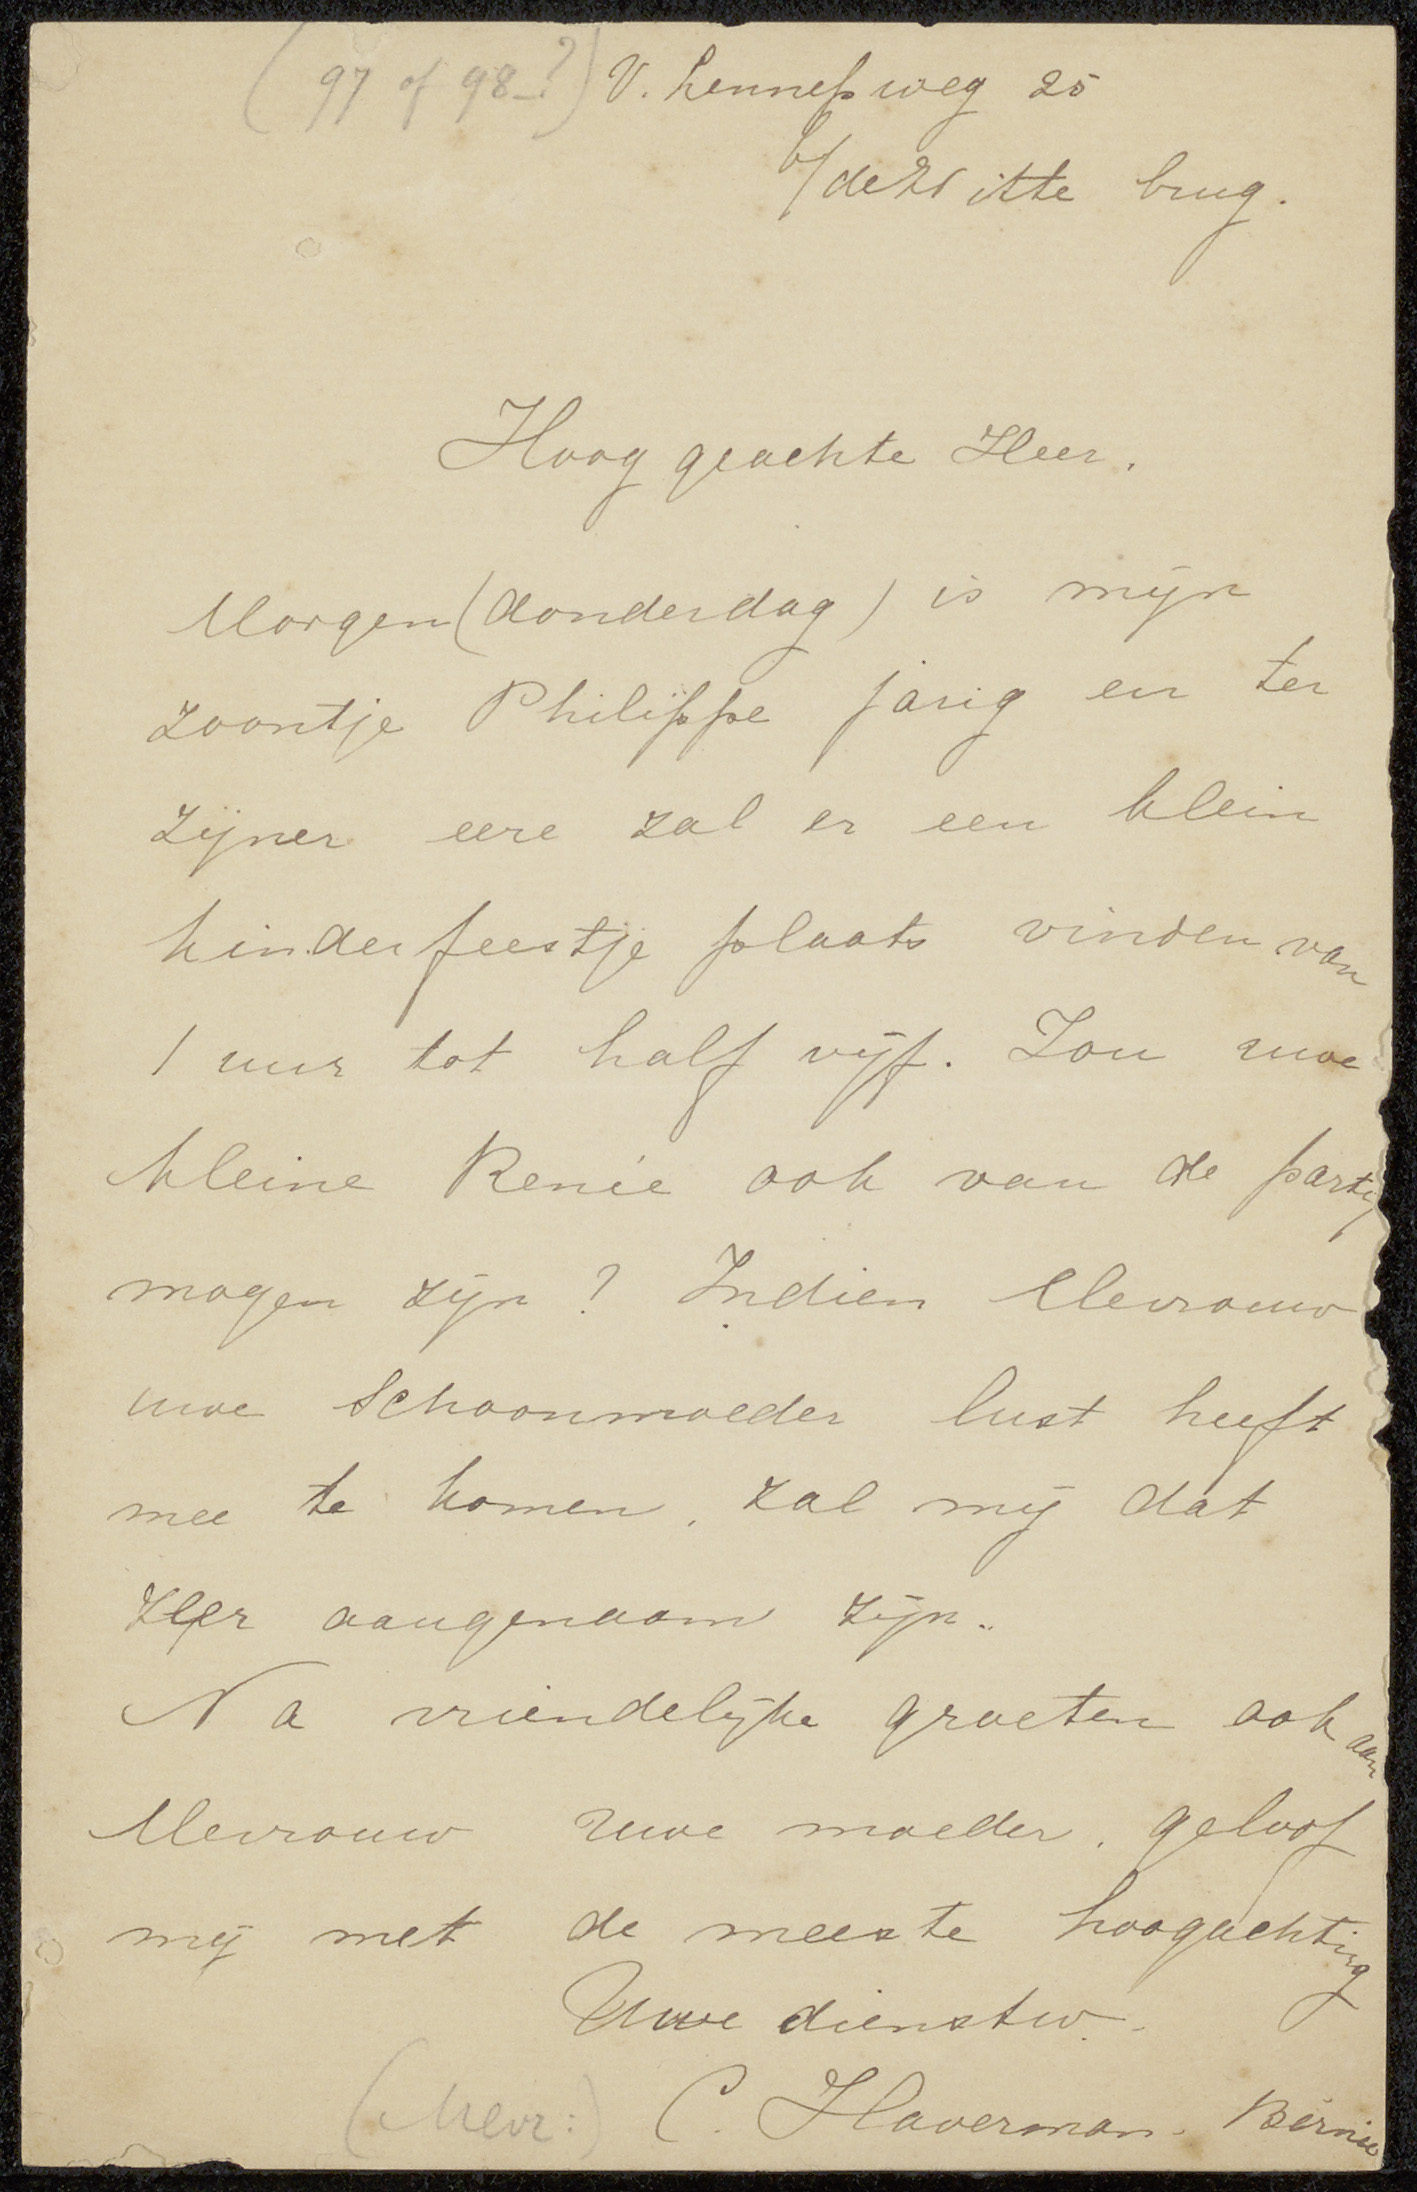 (97 of 98-?) V. Lennepweg 25
b/de Witte brug.
Hoog geachte Heer.
Morgen (donderdag) is mijn
zoontje Philippe jarig en ter
zijner eere zal er een klein
kinderfeestje plaats vinden van
1 uur tot half vijf. Zou uwe
kleine Renée ook van de partij
mogen zijn? Indien Mevrouw
uwe schoonmoeder lust heeft
mee te komen, zal mij dat
zeer aangenaam zijn.
Na vriendelijke groeten ook aan
Mevrouw uwe moeder, geloof
mij met de meeste hoogachting
Uwe dienstw.
(Mevr:) C. Haverman.